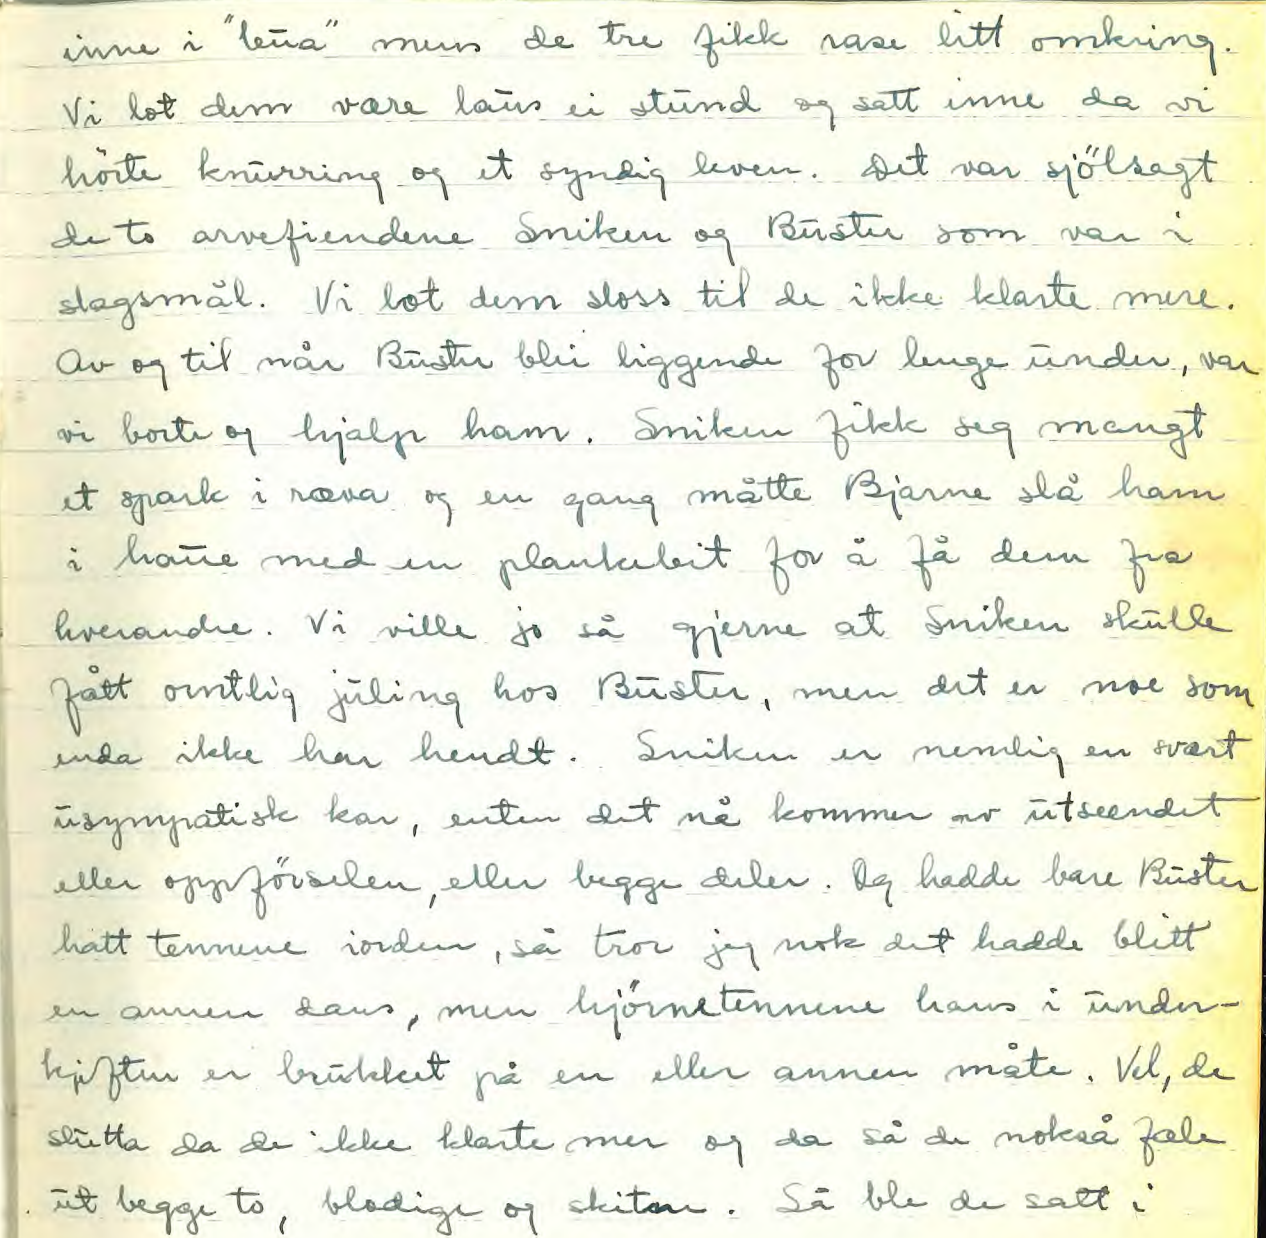 inne i "leua" mens de tre fikk rase litt omkring.
Vi lot dem være laus ei stund og satt inne da vi
hörte knurring og et syndig leven. Det var sjölsagt
de to arvefiendene Sniken og Buster som var i
slagsmål. Vi lot dem sloss til de ikke klarte mere.
Av og til når Buster blir liggende for lenge under, var
vi borte og hjalp ham. Sniken fikk seg mangt
et spark i ræva og en gang måtte Bjarne slå ham
i haue med en plankebit for å få dem fra
hverandre. Vi ville jo så gjerne at Sniken skulle
fått orntlig juling hos Buster, men det er noe som
enda ikke har hendt. Sniken er nemlig en svært
usympatisk kar, enten det nå kommer av utseendet
eller oppförselen, eller begge deler. Og hadde bare Buster
hatt tennene iorden, så tror jeg nok det hadde blitt
en annen dans, men hjörnetennene hans i under-
kjeften er brukket på en eller annen måte. Vel, de
slutta da de ikke klarte mer og da så de nokså fæle
ut begge to, blodige og skitne. Så ble de satt i